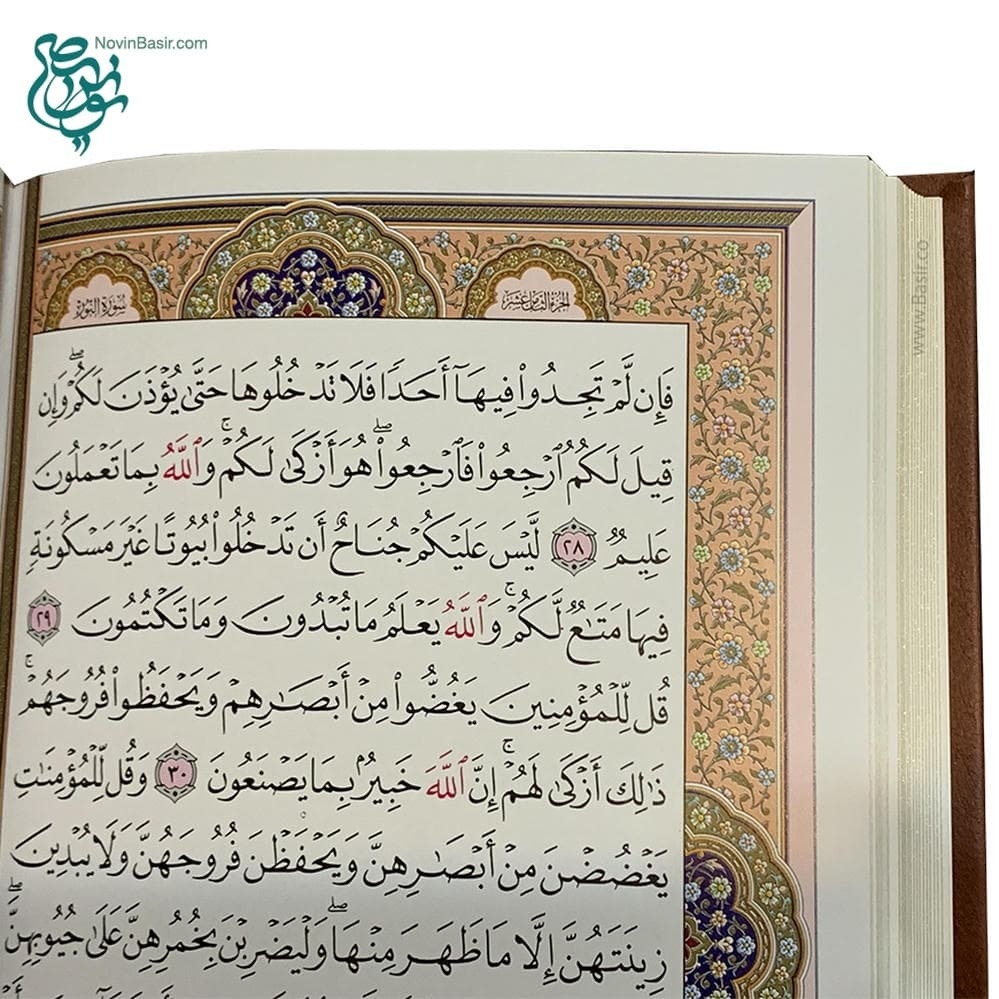 NovinBasir.com
نوین بصیر
www.Basir.co
الجزء الثامن عشر
سورة النور
فَإِن لَّمْ تَجِدُوا۟ فِيهَآ أَحَدًۭا فَلَا تَدْخُلُوهَا حَتَّىٰ يُؤْذَنَ لَكُمْ ۖ وَإِن
قِيلَ لَكُمُ ٱرْجِعُوا۟ فَٱرْجِعُوا۟ ۖ هُوَ أَزْكَىٰ لَكُمْ ۚ وَٱللَّهُ بِمَا تَعْمَلُونَ
عَلِيمٌۭ ٢٨ لَّيْسَ عَلَيْكُمْ جُنَاحٌ أَن تَدْخُلُوا۟ بُيُوتًا غَيْرَ مَسْكُونَةٍۢ
فِيهَا مَتَـٰعٌۭ لَّكُمْ ۚ وَٱللَّهُ يَعْلَمُ مَا تُبْدُونَ وَمَا تَكْتُمُونَ ٢٩
قُل لِّلْمُؤْمِنِينَ يَغُضُّوا۟ مِنْ أَبْصَـٰرِهِمْ وَيَحْفَظُوا۟ فُرُوجَهُمْ ۚ
ذَٰلِكَ أَزْكَىٰ لَهُمْ ۚ إِنَّ ٱللَّهَ خَبِيرٌۢ بِمَا يَصْنَعُونَ ٣٠ وَقُل لِّلْمُؤْمِنَـٰتِ
يَغْضُضْنَ مِنْ أَبْصَـٰرِهِنَّ وَيَحْفَظْنَ فُرُوجَهُنَّ وَلَا يُبْدِينَ
زِينَتَهُنَّ إِلَّا مَا ظَهَرَ مِنْهَا ۖ وَلْيَضْرِبْنَ بِخُمُرِهِنَّ عَلَىٰ جُيُوبِهِنَّ ۖ